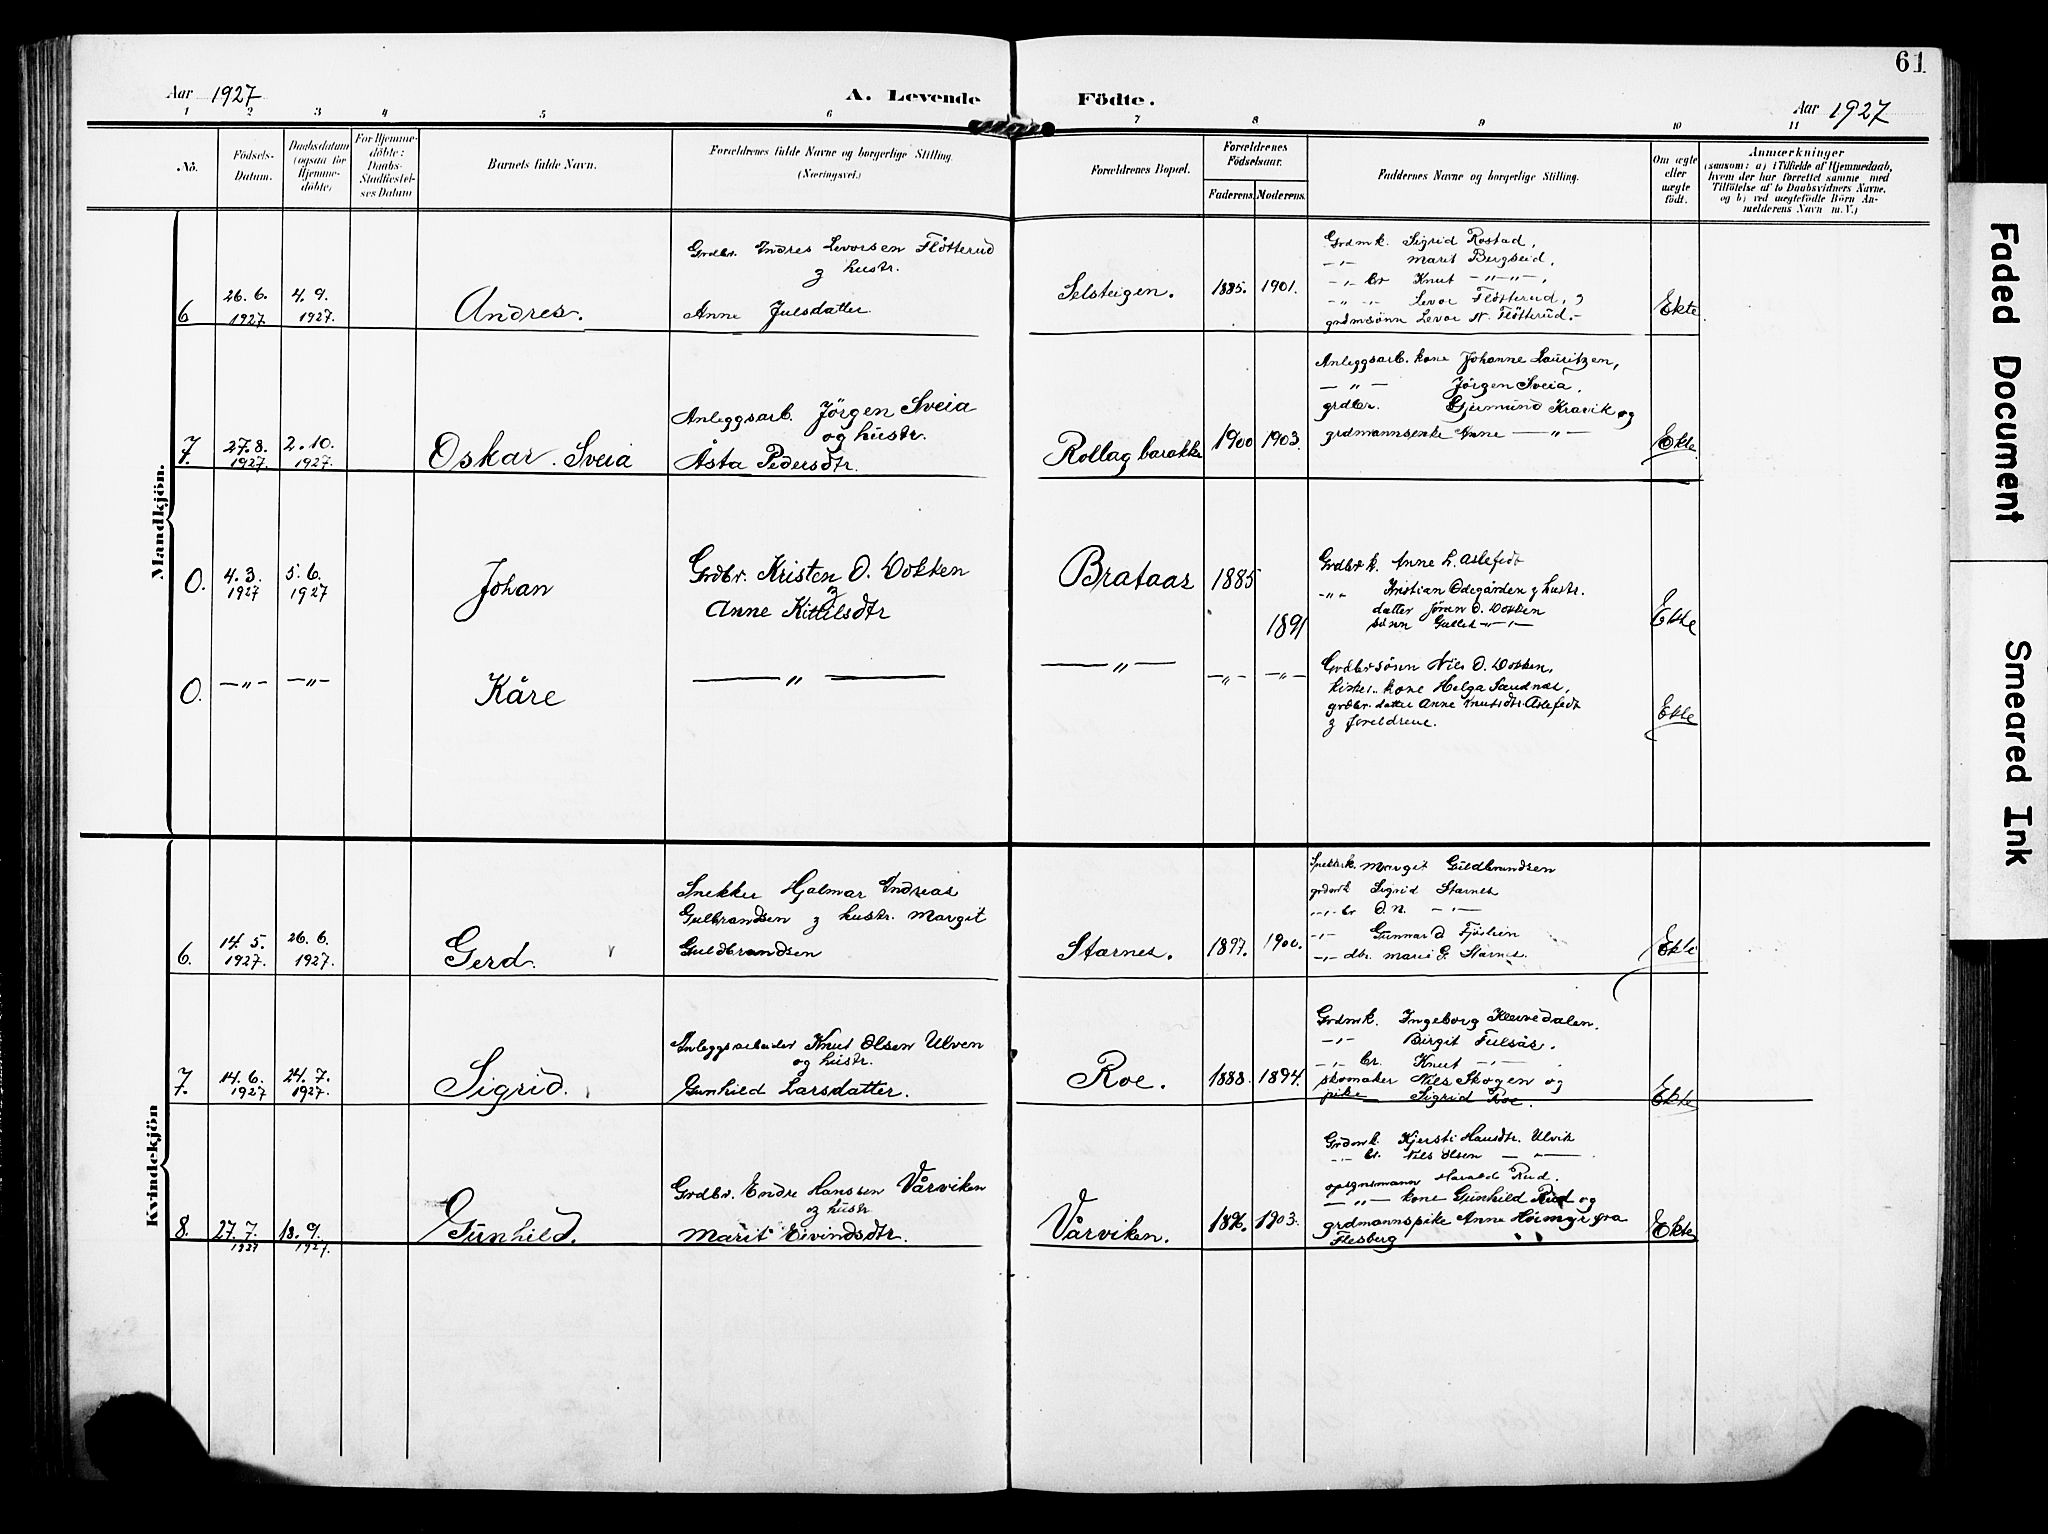 61
Aar 1927
A. Levende Födte.
Aar 1927
1 2 3 4 5 6 7 8 9 10 11
No.
Födsels-
Datum.
Daabsdatum
(ogsaa for
Hjemme-
döbte)
For Hjemme-
döbte:
Daabs-
Stadfæstel-
ses Datum
Barnets fulde Navn.
Forældrenes fulde Navne og borgerlige Stilling.
(Næringsvei.)
Forældrenes Bopæl.
Forældrenes
Födselsaar.
Faderens. Moderens.
Faddernes Navne og borgerlige Stilling.
Om ægte
eller
uægte
födt.
Anmærkninger
(saasom: a) i Tilfælde af Hjemmedaab,
hvem der har forrettet samme med
Tilföielse af to Daabsvidners Navne,
og b) ved uægtefödte Börn An-
melderens Navn m. V.)
Mandkjön.
6
26. 6.
1927
4. 9.
1927.
Andres.
Grdbr. Andres Levorsen Flötterud
& hustr.
Anne Julsdatter
Selsteigen.
1885. 1901.
Grdmk. Sigrid Rostad,
-"- Marit Bergseid,
-"- br Knut -"-"-,
-"- "- Levor Flötterud, &
grdmsönn Levor N. Flötterud.-
Ekte
7.
27. 8.
1927.
2. 10.
1927.
Oskar Sveia
Anleggsarb. Jörgen Sveia
og hustr.
Åsta Pedersdtr.
Rollag barakke
1900 1903.
Anleggsarb. kone Johanne Lauritzen,
-"- Jörgen Sveia,
grdbr. Gjermund Kravik og
grdmannsenke Anne -"-
Ekte
0.
4. 3.
1927
5. 6.
1927
Johan
Grdbr. Kristen O. Vokken
&
Anne Kittilsdtr
Brataas
1885
1891
Grdbr k. Anne L. Aslefedt
"- Kristian Ödegården & hustr.
datter Jöran O. Vokken
sönn Gullek -"-
Ekte
0.
-"- -"-
Kåre
-"-
-"-
-"- -"-
Grdbrsönn Nils O. Vokken,
kone Helga Sandnes,
grdbr. datter Anne Knutsdtr. Aslefedt
& foreldrene.
Ekte
Kvindekjön
6.
14. 5.
1927.
26. 6.
1927.
Gerd.
Snekker Hjalmar Andreas
Gulbrandsen & hustr. Margit
Guldbrandsen
Stærnes.
1897. 1900.
Snekkerk. Margit Guldbrandsen
grdmk Sigrid Stærnes
-"- br O.N. -"-
-"- Gunnar O Fjöslien
-"- dtr. Mari G. Stærnes.
Ekte
7.
14. 6.
1927
24. 7.
1927.
Sigrid.
Anleggsarbeider Knut Olsen Ulven
og hustr.
Gunhild Larsdatter.
Roe.
1888. 1894.
Grdmk. Ingeborg Klevedalen.
-"- Birgit Fulsås.
-"- br. Knut -"-
skomaker Nils Skogen og
pike Sigrid Roe.
Ekte
8.
27. 7.
1927
18. 9.
1927.
Gunhild.
Grdbr. Endre Hanssen Vårviken
& hustr
Marit Eivindsdtr.
Vårviken.
1896. 1903.
Grdmk. Kjersti Hansdtr. Ulvik
-"- br. Nils Olsen -"-
opsynsmann Harald Rud.
-"- kone Gunhild Rud og
grdmannspike Anne Höimyr fra
Flesberg
Ekte
Faded Document
Smeared Ink